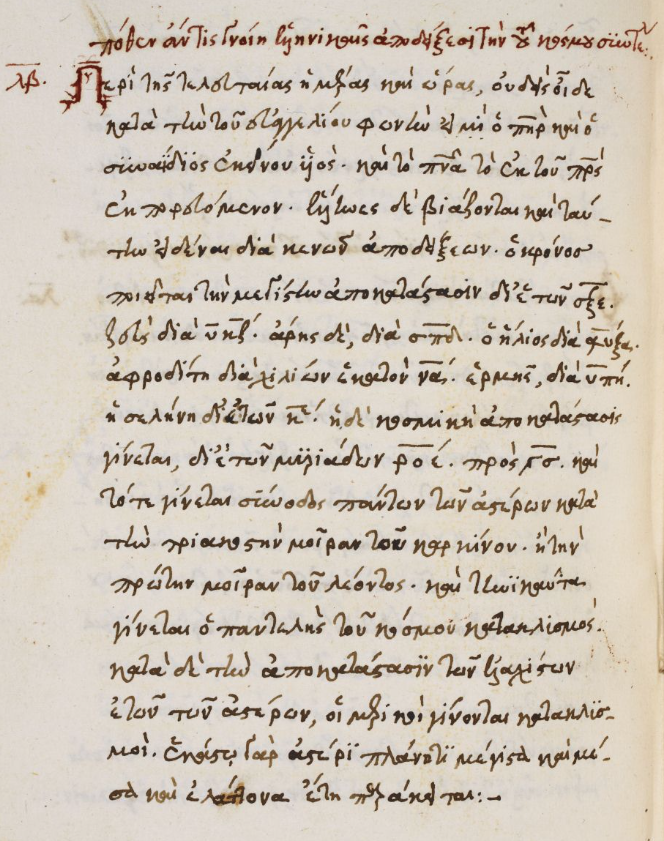 πόθεν ἄν τις γνοίη ἐξηγητικαῖς ἀποδείξεσι τὴν τοῦ κόσμου συντε:
λβ. Περὶ τῆς τελευταίας ἡμέρας καὶ ὥρας, οὐδεὶς οἶδε
κατὰ τὴν τοῦ εὐαγγελίου φωνὴν εἰ μὴ ὁ πηρ καὶ ὁ
συναΐδιος ἐκείνου υἱός. καὶ τὸ πνα τὸ ἐκ τοῦ πρς
ἐκπορευόμενον. τινες δὲ βιάζονται καὶ ταύ-
την εἰδέναι διὰ κενῶν ἀποδείξεων. ὁ κρόνος
ποιεῖται τὴν μεγίστην ἀποκατάστασιν δι' ἐτῶν σξε.
ζεὺς διὰ υκζ. ἄρης δὲ, διὰ σπδ. ὁ ἥλιος διὰ
ἀφροδίτη διὰ χιλίων ἑκατὸν να. ἑρμῆς, διὰ υπη.
ἡ σελήνη δι' ἐτῶν κε. ἡ δὲ κοσμικὴ ἀποκατάστασις
γίνεται, δι' ἐτῶν μυριάδων ροε. πρὸς γσ. καὶ
τότε γίνεται σύνοδος πάντων τῶν ἀστέρων κατὰ
τὴν τριακοστὴν μοῖραν τοῦ καρκίνου. ἢ τὴν
πρώτην μοῖραν τοῦ λέοντος. καὶ τηνικαῦτα
γίνεται ὁ παντελὴς τοῦ κόσμου κατακλισμός.
κατὰ δὲ τὴν ἀποκατάστασιν τῶν ἐλαχίστων
ἐτῶν τῶν ἀστέρων, οἱ μερικοὶ γίνονται κατακλισ-
μοί. ἑκάστῳ γὰρ ἀστέρι πλάνητι μέγιστα καὶ μέ-
σα καὶ ἐλάττονα ἔτη :-